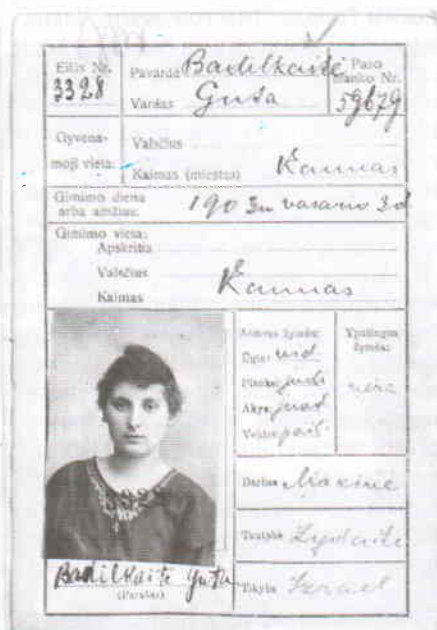 Eilės Nr.
3328
Pavardė Badilkaitė
Vardas Guta
Paso blanko Nr.
59679
Gyvena-
moji vieta:
Valsčius
Kaimas (miestas) Kaunas
Gimimo diena
arba amžius: 1903 m vasario 3 d
Gimimo vieta:
Apskritis
Valsčius
Kaimas Kaunas
Asmens žymės:
Ūgis: vid
Plaukai juodi
Akys juod
Veidas pail
Ypatingos
žymės:
nėra
Darbas
Tautybė Žydaitė
Tikyba Izrael
Badilkaitė Guta
(Parašas)